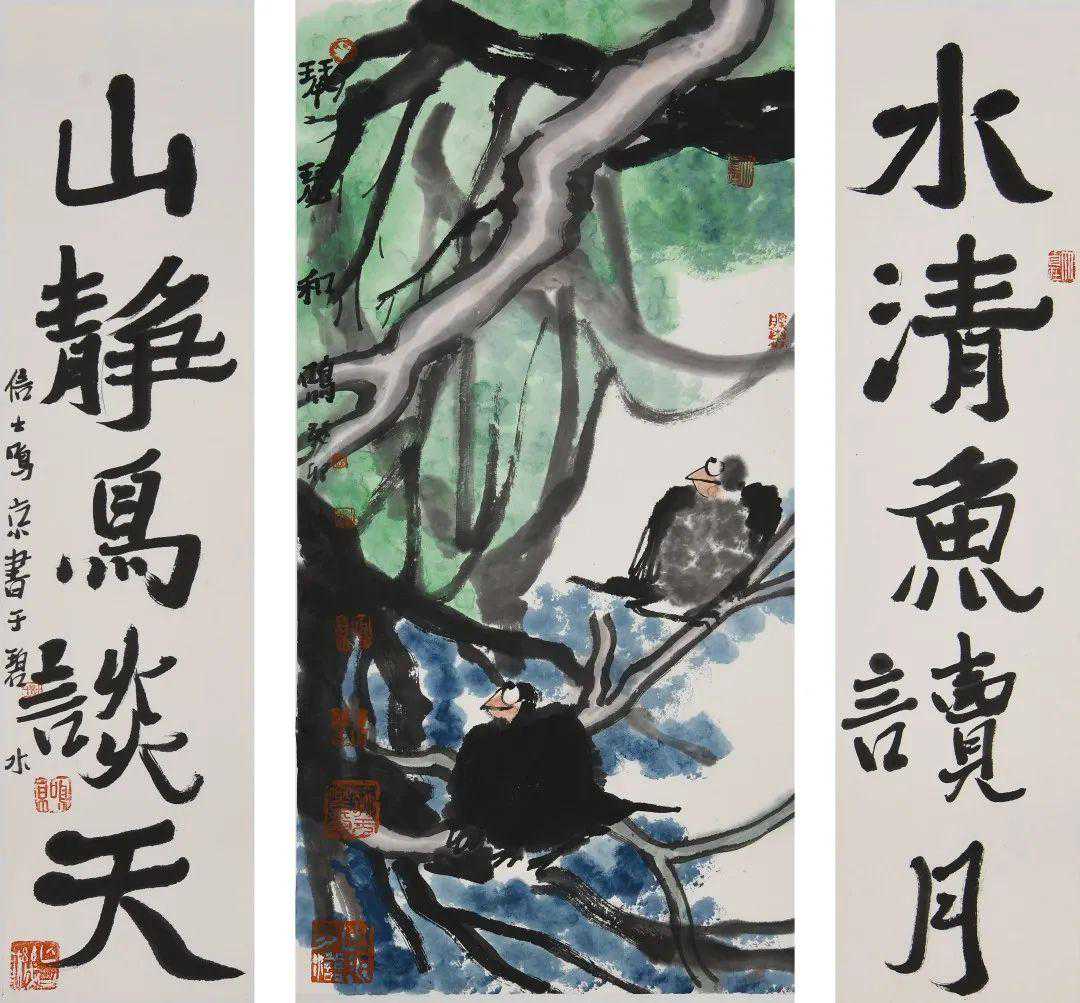 水清魚讀月
琴瑟和鳴
山靜鳥談天
士鳴京書于碧水